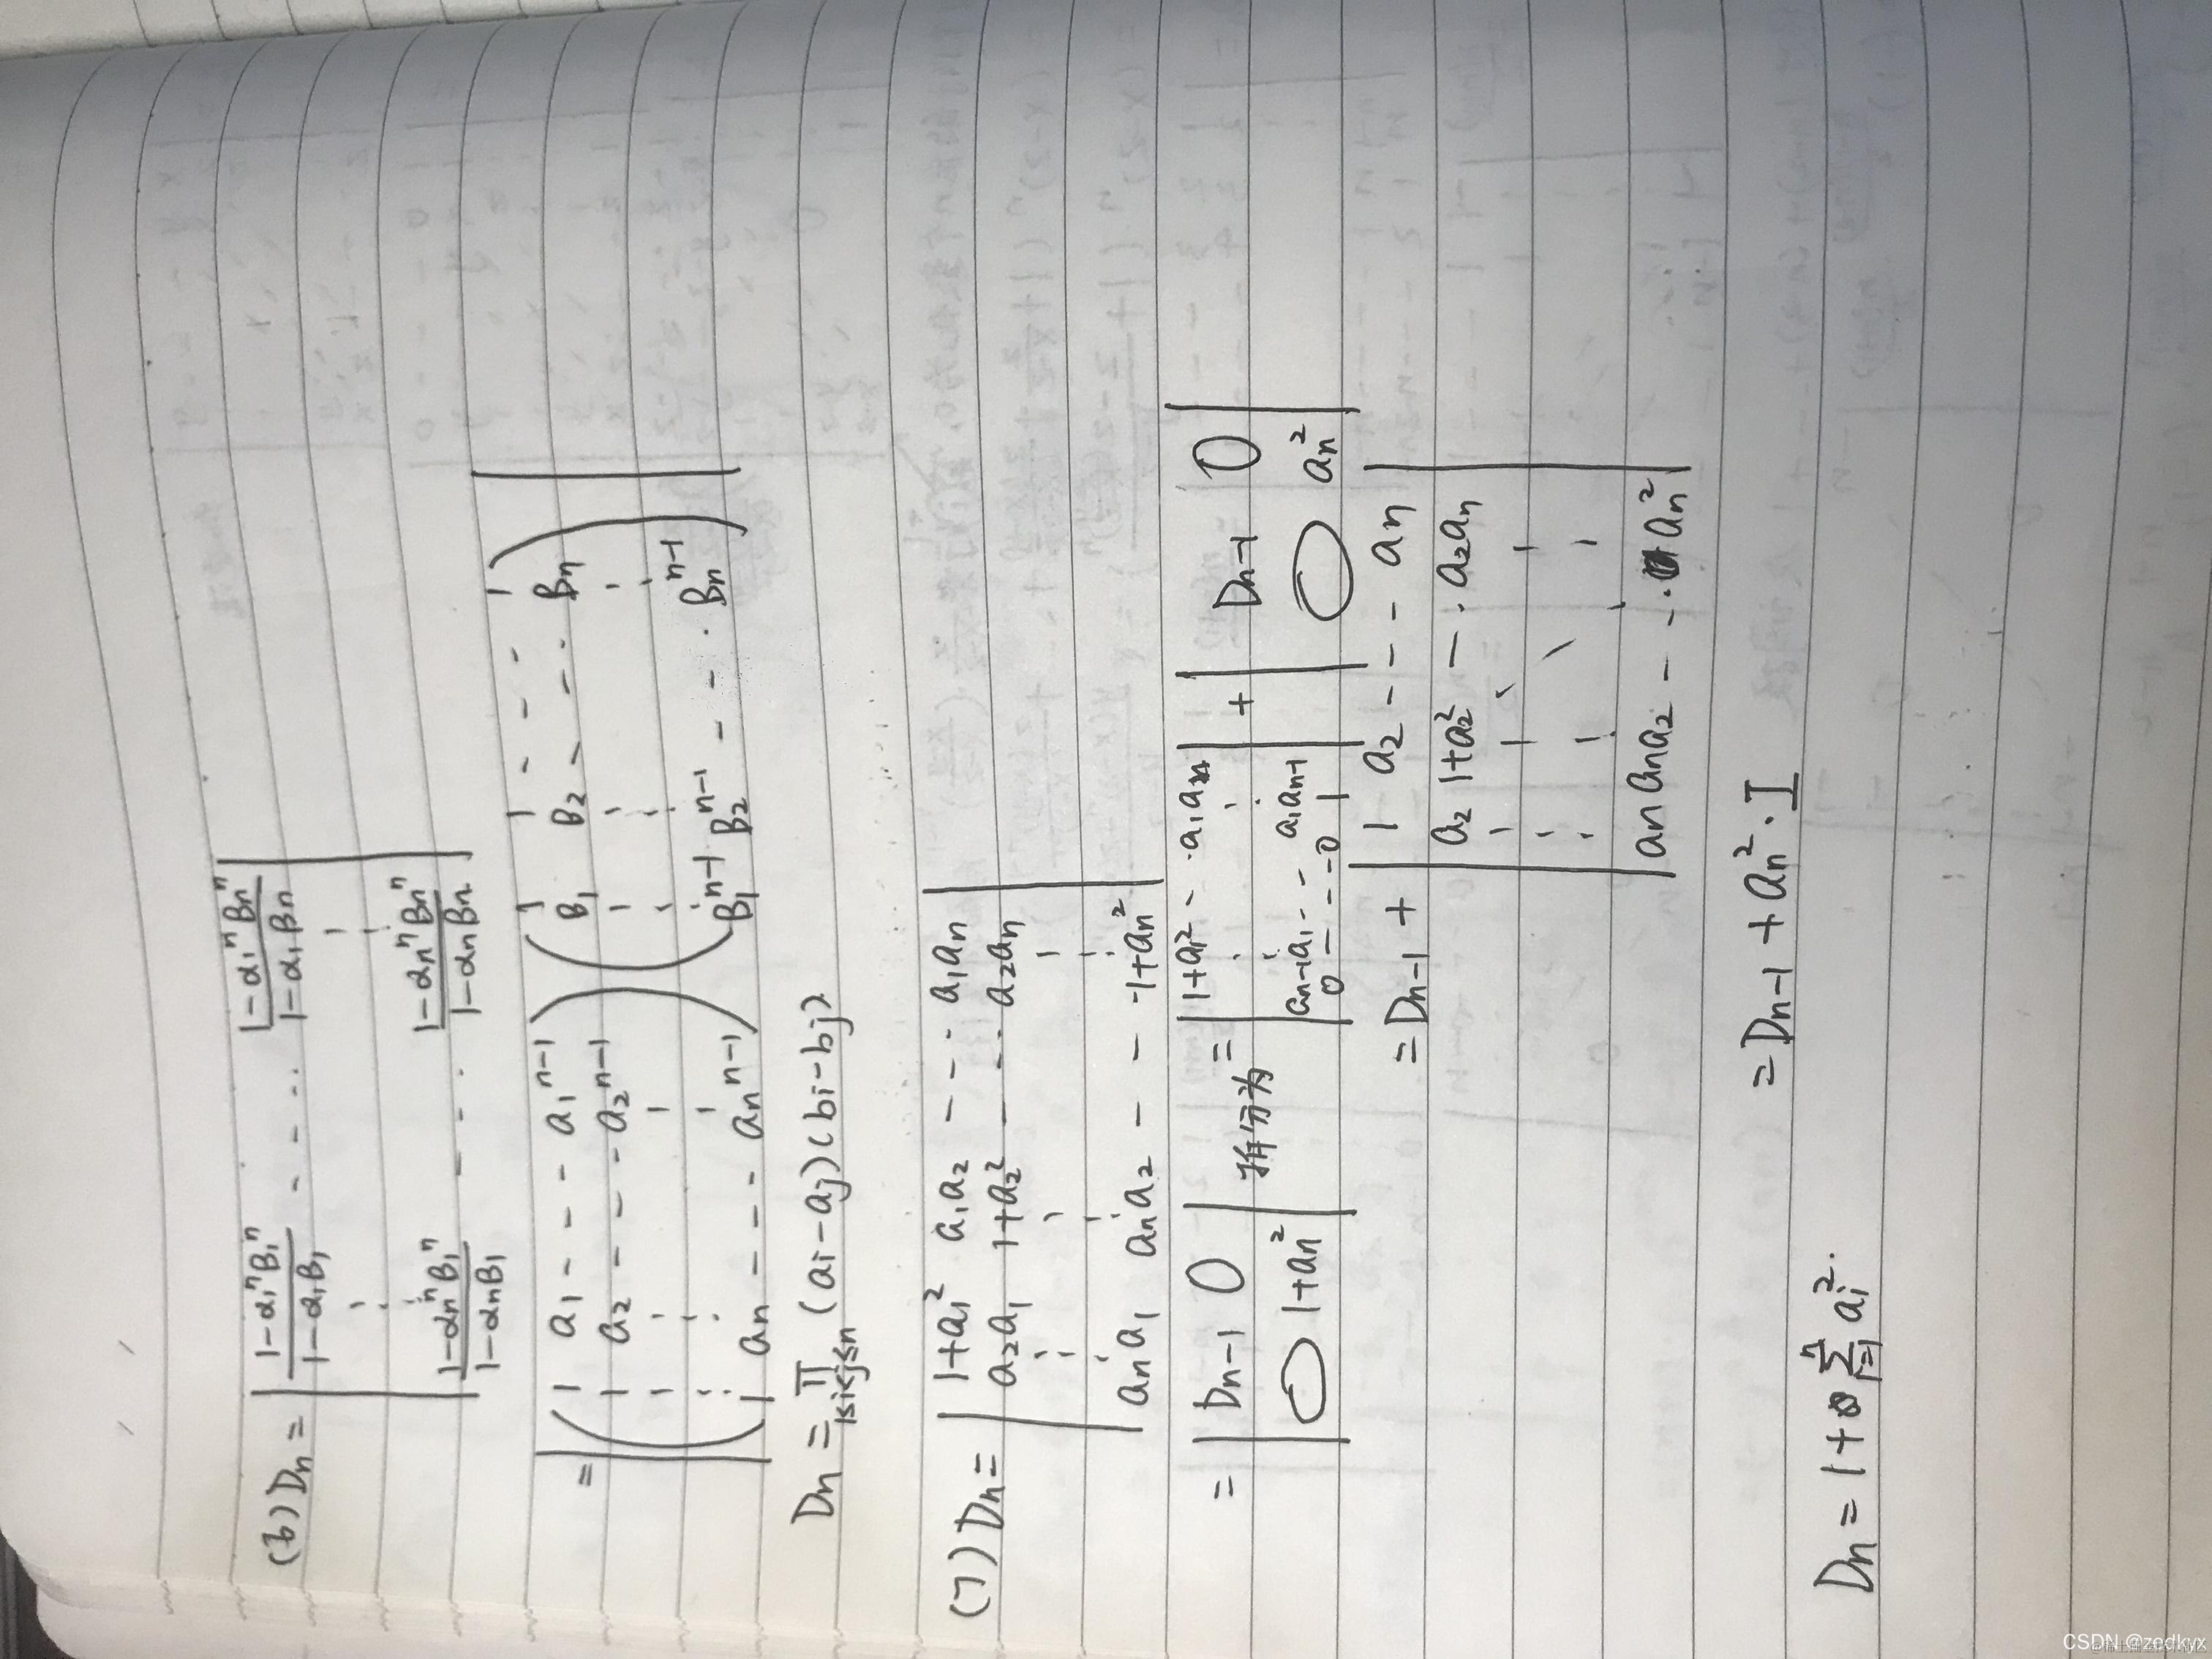 (6) Dn = | (1-α₁ⁿβ₁ⁿ)/(1-α₁β₁) - - .. (1-α₁ⁿβnⁿ)/(1-α₁βn) |
⋮ ⋮
| (1-αnⁿβ₁ⁿ)/(1-αnβ₁) - - .. (1-αnⁿβnⁿ)/(1-αnβn) |
= | ( 1 a₁ - - - a₁ⁿ⁻¹ ) ( 1 1 - - - 1 ) |
( 1 a₂ - - - a₂ⁿ⁻¹ ) ( β₁ β₂ - - .. βn )
⋮ ⋮ ⋮ ⋮ ⋮ ⋮
( 1 an - - .. anⁿ⁻¹ ) ( β₁ⁿ⁻¹ β₂ⁿ⁻¹ - - . βnⁿ⁻¹ )
Dn = Π 1≤i<j≤n (ai-aj)(bi-bj)
(7) Dn = | 1+a₁² a₁a₂ - - .. a₁an |
| a₂a₁ 1+a₂² - - .. a₂an |
⋮ ⋮ ⋮
| ana₁ ana₂ - - - 1+an² |
= | Dn-1 0 | 拆分为 = | 1+a₁² - . a₁an-1 | + | Dn-1 0 |
| 0 1+an² | | an-1a₁ - - a₁an-1 | | 0 an² |
| 0 - - - 0 1 |
= Dn-1 + | 1 a₂ - - - an |
| a₂ 1+a₂² - . a₂an |
⋮ ⋮ ⋱ ⋮
| an ana₂ - - .. an² |
= Dn-1 + an² · I
Dn = 1+ Σ i=1 n ai².
CSDN @zedkyx